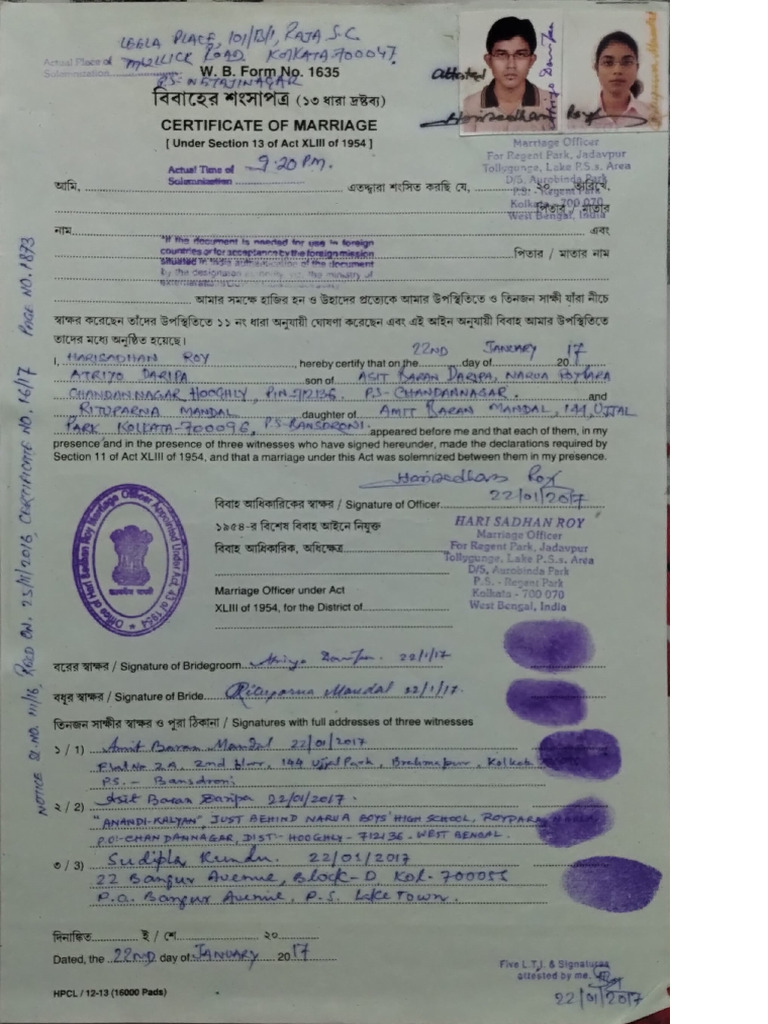 LEELA PLACE, 101/B/1, RAJA S.C.
Actual Place of Solemnization MULLICK ROAD KOLKATA-700047.
P.S- NETAJINAGAR
W. B. Form No. 1635
বিবাহের শংসাপত্র (১৩ ধারা দ্রষ্টব্য)
CERTIFICATE OF MARRIAGE
[ Under Section 13 of Act XLIII of 1954 ]
Attested
Harisadhan Roy
Marriage Officer
For Regent Park, Jadavpur
Tollygunge, Lake P.S.s. Area
D/5, Aurobinda Park
P.S. - Regent Park
Kolkata - 700 070
West Bengal, India
Actual Time of Solemnization 9.20 P.M.
আমি, এতদ্দ্বারা শংসিত করছি যে, ২০ তারিখে,
পিতার / মাতার
নাম এবং
"If the document is needed for use in foreign
countries or for acceptance by the foreign mission
পিতার / মাতার নাম
আমার সমক্ষে হাজির হন ও উহাদের প্রত্যেকে আমার উপস্থিতিতে ও তিনজন সাক্ষী যাঁরা নীচে
স্বাক্ষর করেছেন তাঁদের উপস্থিতিতে ১১ নং ধারা অনুযায়ী ঘোষণা করেছেন এবং এই আইন অনুযায়ী বিবাহ আমার উপস্থিতিতে
তাদের মধ্যে অনুষ্ঠিত হয়েছে।
I, HARISADHAN ROY, hereby certify that on the 22ND day of JANUARY 2017
ATRIYO DARIPA son of ASIT BARAN DARIPA, NARUA ROYPARA
CHANDANNAGAR, HOOGHLY, PIN-712136. P.S- CHANDANNAGAR. and
RITUPARNA MANDAL daughter of AMIT BARAN MANDAL, 144, UJJAL
PARK KOLKATA-700096, P.S-BANSDRONI. appeared before me and that each of them, in my
presence and in the presence of three witnesses who have signed hereunder, made the declarations required by
Section 11 of Act XLIII of 1954, and that a marriage under this Act was solemnized between them in my presence.
Harisadhan Roy
বিবাহ আধিকারিকের স্বাক্ষর / Signature of Officer 22/01/2017
১৯৫৪-র বিশেষ বিবাহ আইনে নিযুক্ত
বিবাহ আধিকারিক, অধিক্ষেত্র
HARI SADHAN ROY
Marriage Officer
For Regent Park, Jadavpur
Tollygunge, Lake P.S.s. Area
D/5, Aurobinda Park
P.S. - Regent Park
Kolkata - 700 070
West Bengal, India
Marriage Officer under Act
XLIII of 1954, for the District of
Office of Hari Sadhan Roy Marriage Officer Appointed Under Act, 43 of 1954
सत्यमेव जयते
NOTICE SL. NO. 111/16, RECD ON. 25/11/2016, CERTIFICATE NO. 16/17 PAGE NO. 1873
বরের স্বাক্ষর / Signature of Bridegroom Atriyo Daripa. 22/1/17
বধূর স্বাক্ষর / Signature of Bride Rituparna Mandal 22/1/17.
তিনজন সাক্ষীর স্বাক্ষর ও পুরা ঠিকানা / Signatures with full addresses of three witnesses
১ / 1) Amit Baran Mandal 22/01/2017
Flat No 2A, 2nd floor, 144 Ujjal Park, Brahmapur, Kolkata
P.S. - Bansdroni
২ / 2) Asit Baran Daripa 22/01/2017.
"ANANDI-KALYAN", JUST BEHIND NARUA BOYS' HIGH SCHOOL, ROYPARA,
P.O:-CHANDANNAGAR, DIST:- HOOGHLY - 712136 - WEST BENGAL.
৩ / 3) Sudipta Kundu. 22/01/2017
22 Bangur Avenue, Block-D, Kol-700055
P.O. Bangur Avenue, P.S. Lake Town.
দিনাঙ্কিত ই / শে ২০
Dated, the 22ND day of JANUARY 2017
Five L.T.I. & Signatures
attested by me.
22/01/2017
HPCL / 12-13 (16000 Pads)